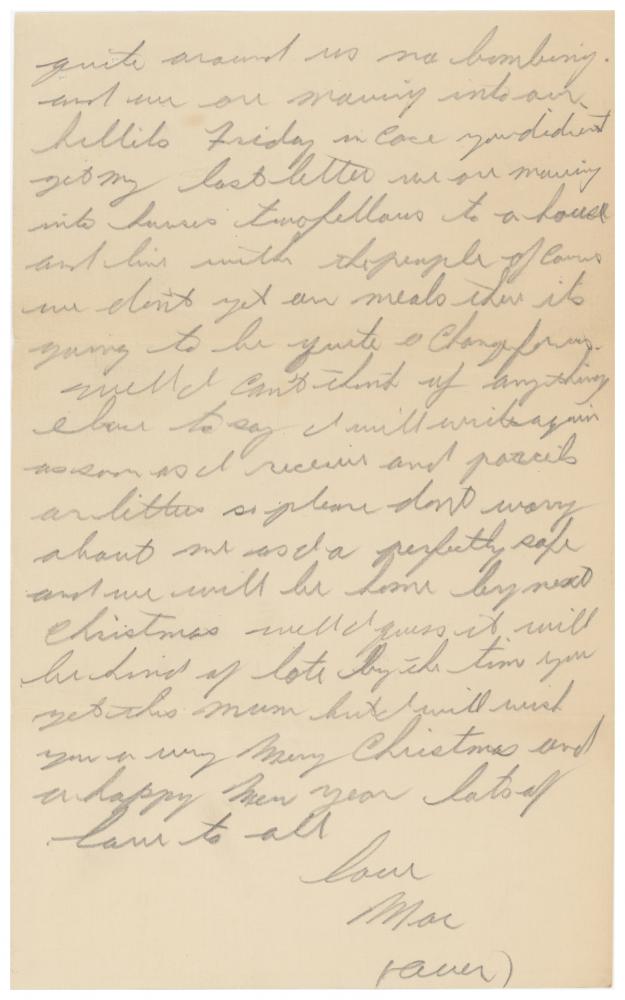 quite around us no bombing.
and we are moving into our
billits Friday in case you didient
get my last letter we are moving
into houses two fellows to a house
and live with the people of cours
we don't get our meals there its
going to be quite a change for us.
well I can't think of anything
else to say I will write again
as soon as I receive and parcels
or letters so please don't worry
about me as I a perfectly safe
and we will be home by next
Christmas well I guess it will
be kind of late by the time you
get this mum but I will wish
you a very Merry Christmas and
a happy New year lots of
love to all
Love
Mac
(over)